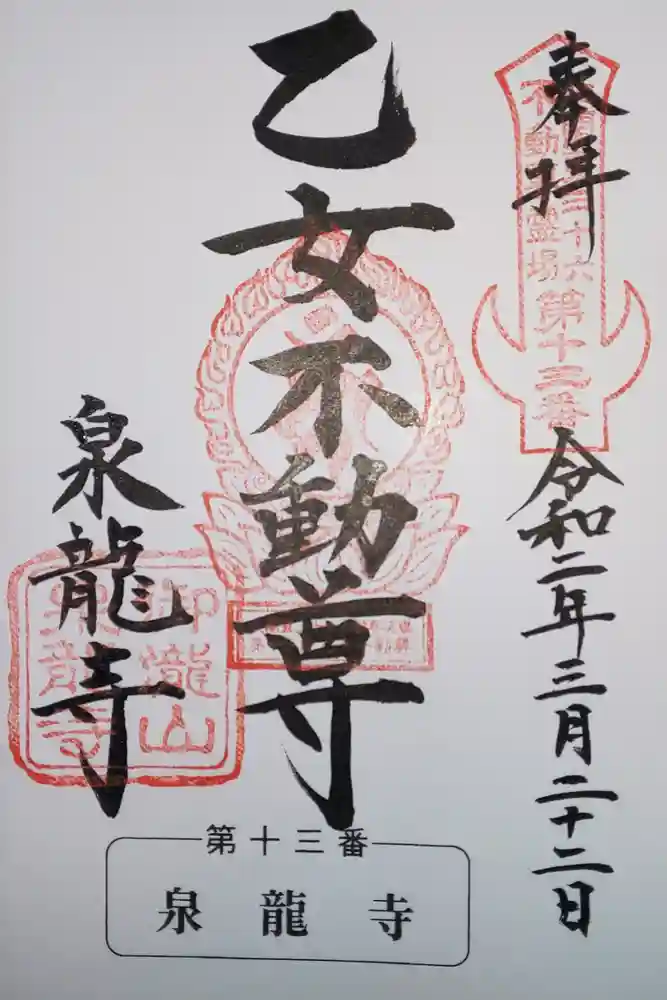 奉拝
第十三番
令和二年三月二十二日
乙女不動尊
泉龍寺
御瀧山
泉龍寺
第十三番
泉龍寺